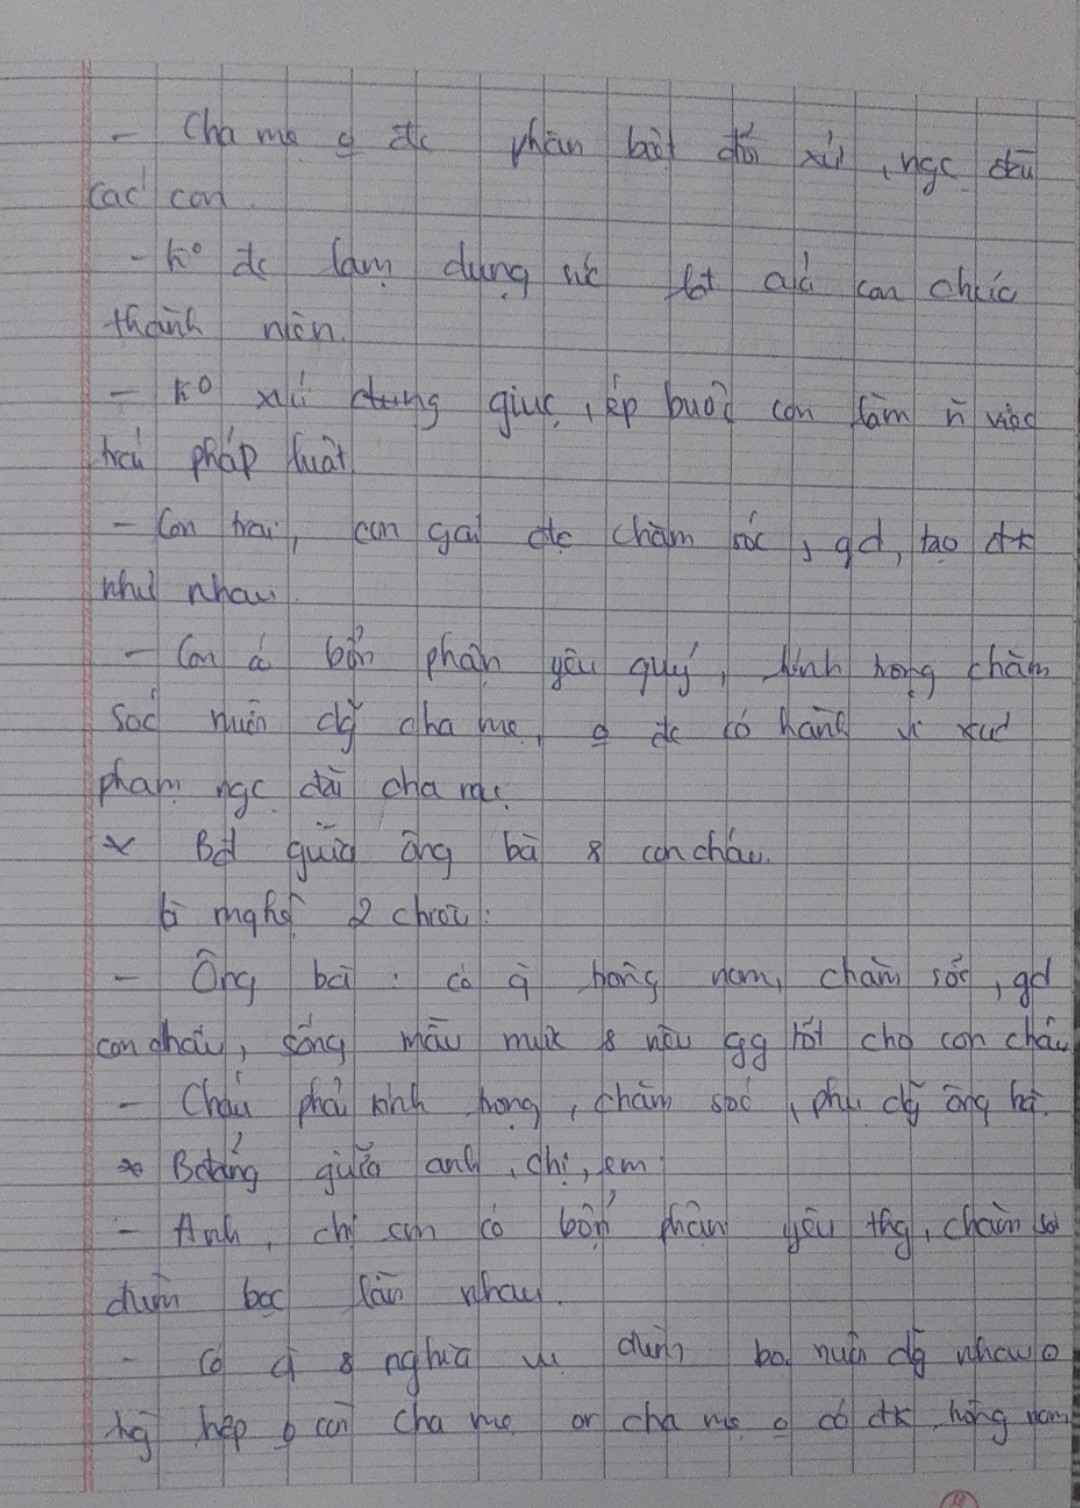 - Cha mẹ o đc phân biệt đối xử, ngc đãi
các con.
- ko đc lạm dụng sức lđ của con chưa
thành niên.
- ko xúi dụng giục, ép buộc con làm n~ việc
trái pháp luật
- Con trai, con gái đc chăm sóc, gd, tạo đk
như nhau.
- Con có bổn phận yêu quý, kính trọng chăm
sóc nuôi dg~ cha mẹ, o đc có hành vi xúc
phạm ngc đãi cha mẹ.
* Bđ giữa ông bà & con cháu.
nghĩa 2 chiều:
- Ông bà : có q trông nom, chăm sóc, gd
con cháu, sống mẫu mực & nêu gg tốt cho con cháu
- Cháu phải kính trọng, chăm sóc, phụ dg~ ông bà.
* Bđẳng giữa anh, chị, em
- Anh, chị em có bổn phận yêu thg, chăm sóc
đùm bọc lẫn nhau.
- Có q & nghĩa vụ đùm bọc nuôi dg~ nhau o
trg hợp o còn cha mẹ or cha mẹ o có đk trông nom